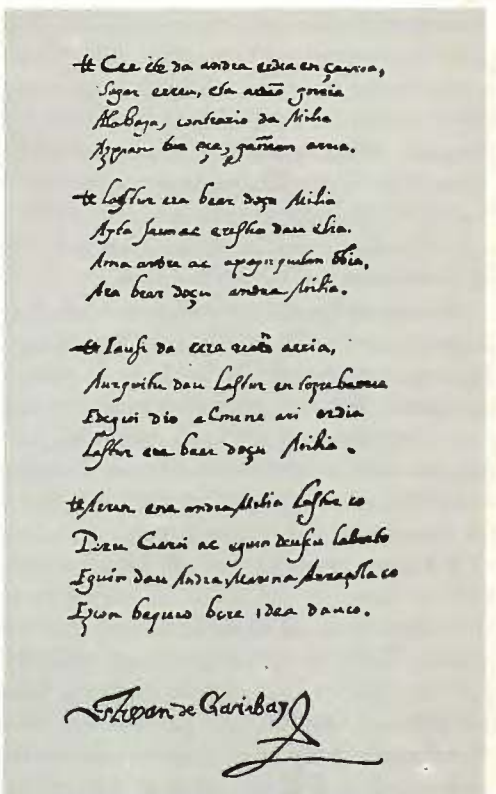 Cer ete da andra erdiaen çauria,
Sagar errea, eta ardaõ gorria
Alabaya, contrario da Milia
Azpian lur oça, gañean arria.
Lastur era bear doçu Milia
Ayta Jaunac eresten dau elia.
Ama andre ac apaynquetan obia,
Ara bear doçu andra Milia.
Iausi da arria,
Aurquitu dau Lastur en torre barria
Edegui dio almene ari erdia
Lastur era bear doçu Milia.
Arren ene andra Milia Lastur co
Peru Garci ac eguin deuscu laburto
Eguin dau Andra Marina Arrazola co
Ezcon bequio bere idea dauco.
Estevan de Garibay